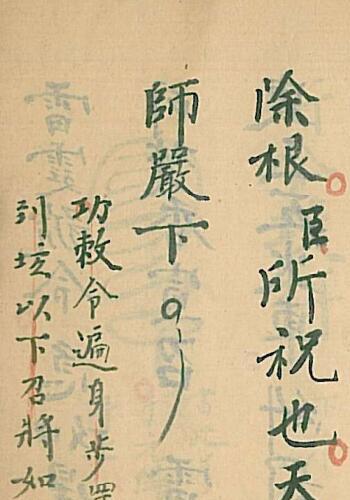 除根臣所祝也天
師嚴下
功敕令遍身步罡
到壇以下召將如